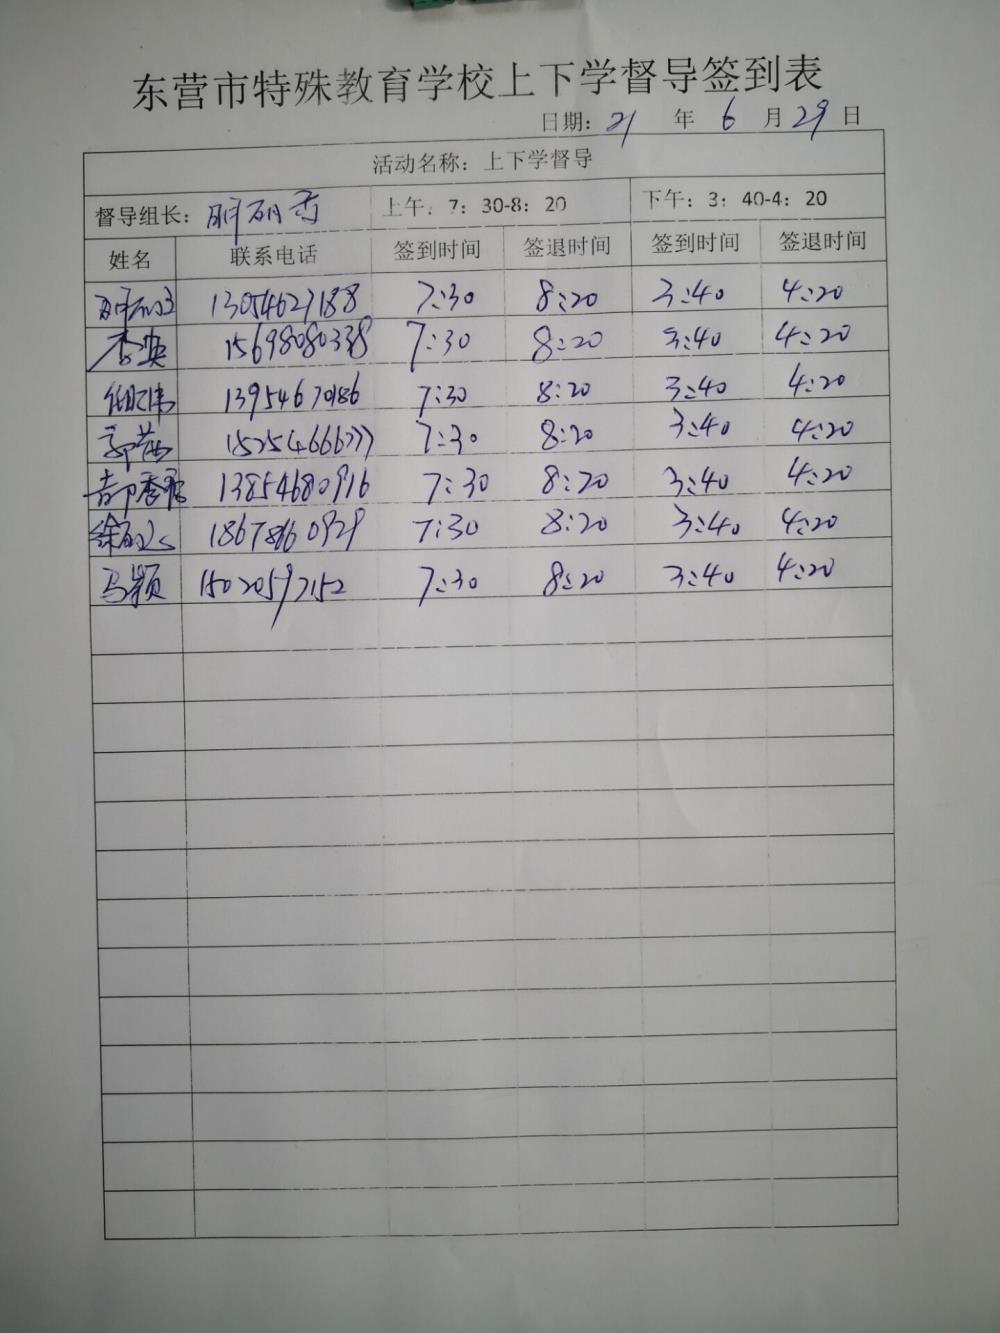 东营市特殊教育学校上下学督导签到表
日期: 21 年 6 月 29 日
活动名称: 上下学督导
督导组长: 上午: 7: 30-8: 20 下午: 3: 40-4: 20
姓名 联系电话 签到时间 签退时间 签到时间 签退时间
13054627188 7:30 8:20 3:40 4:20
李英 15698080338 7:30 8:20 3:40 4:20
13954670186 7:30 8:20 3:40 4:20
郭茜 15254666777 7:30 8:20 3:40 4:20
13854680916 7:30 8:20 3:40 4:20
徐 18678660929 7:30 8:20 3:40 4:20
马颖 15020597152 7:30 8:20 3:40 4:20